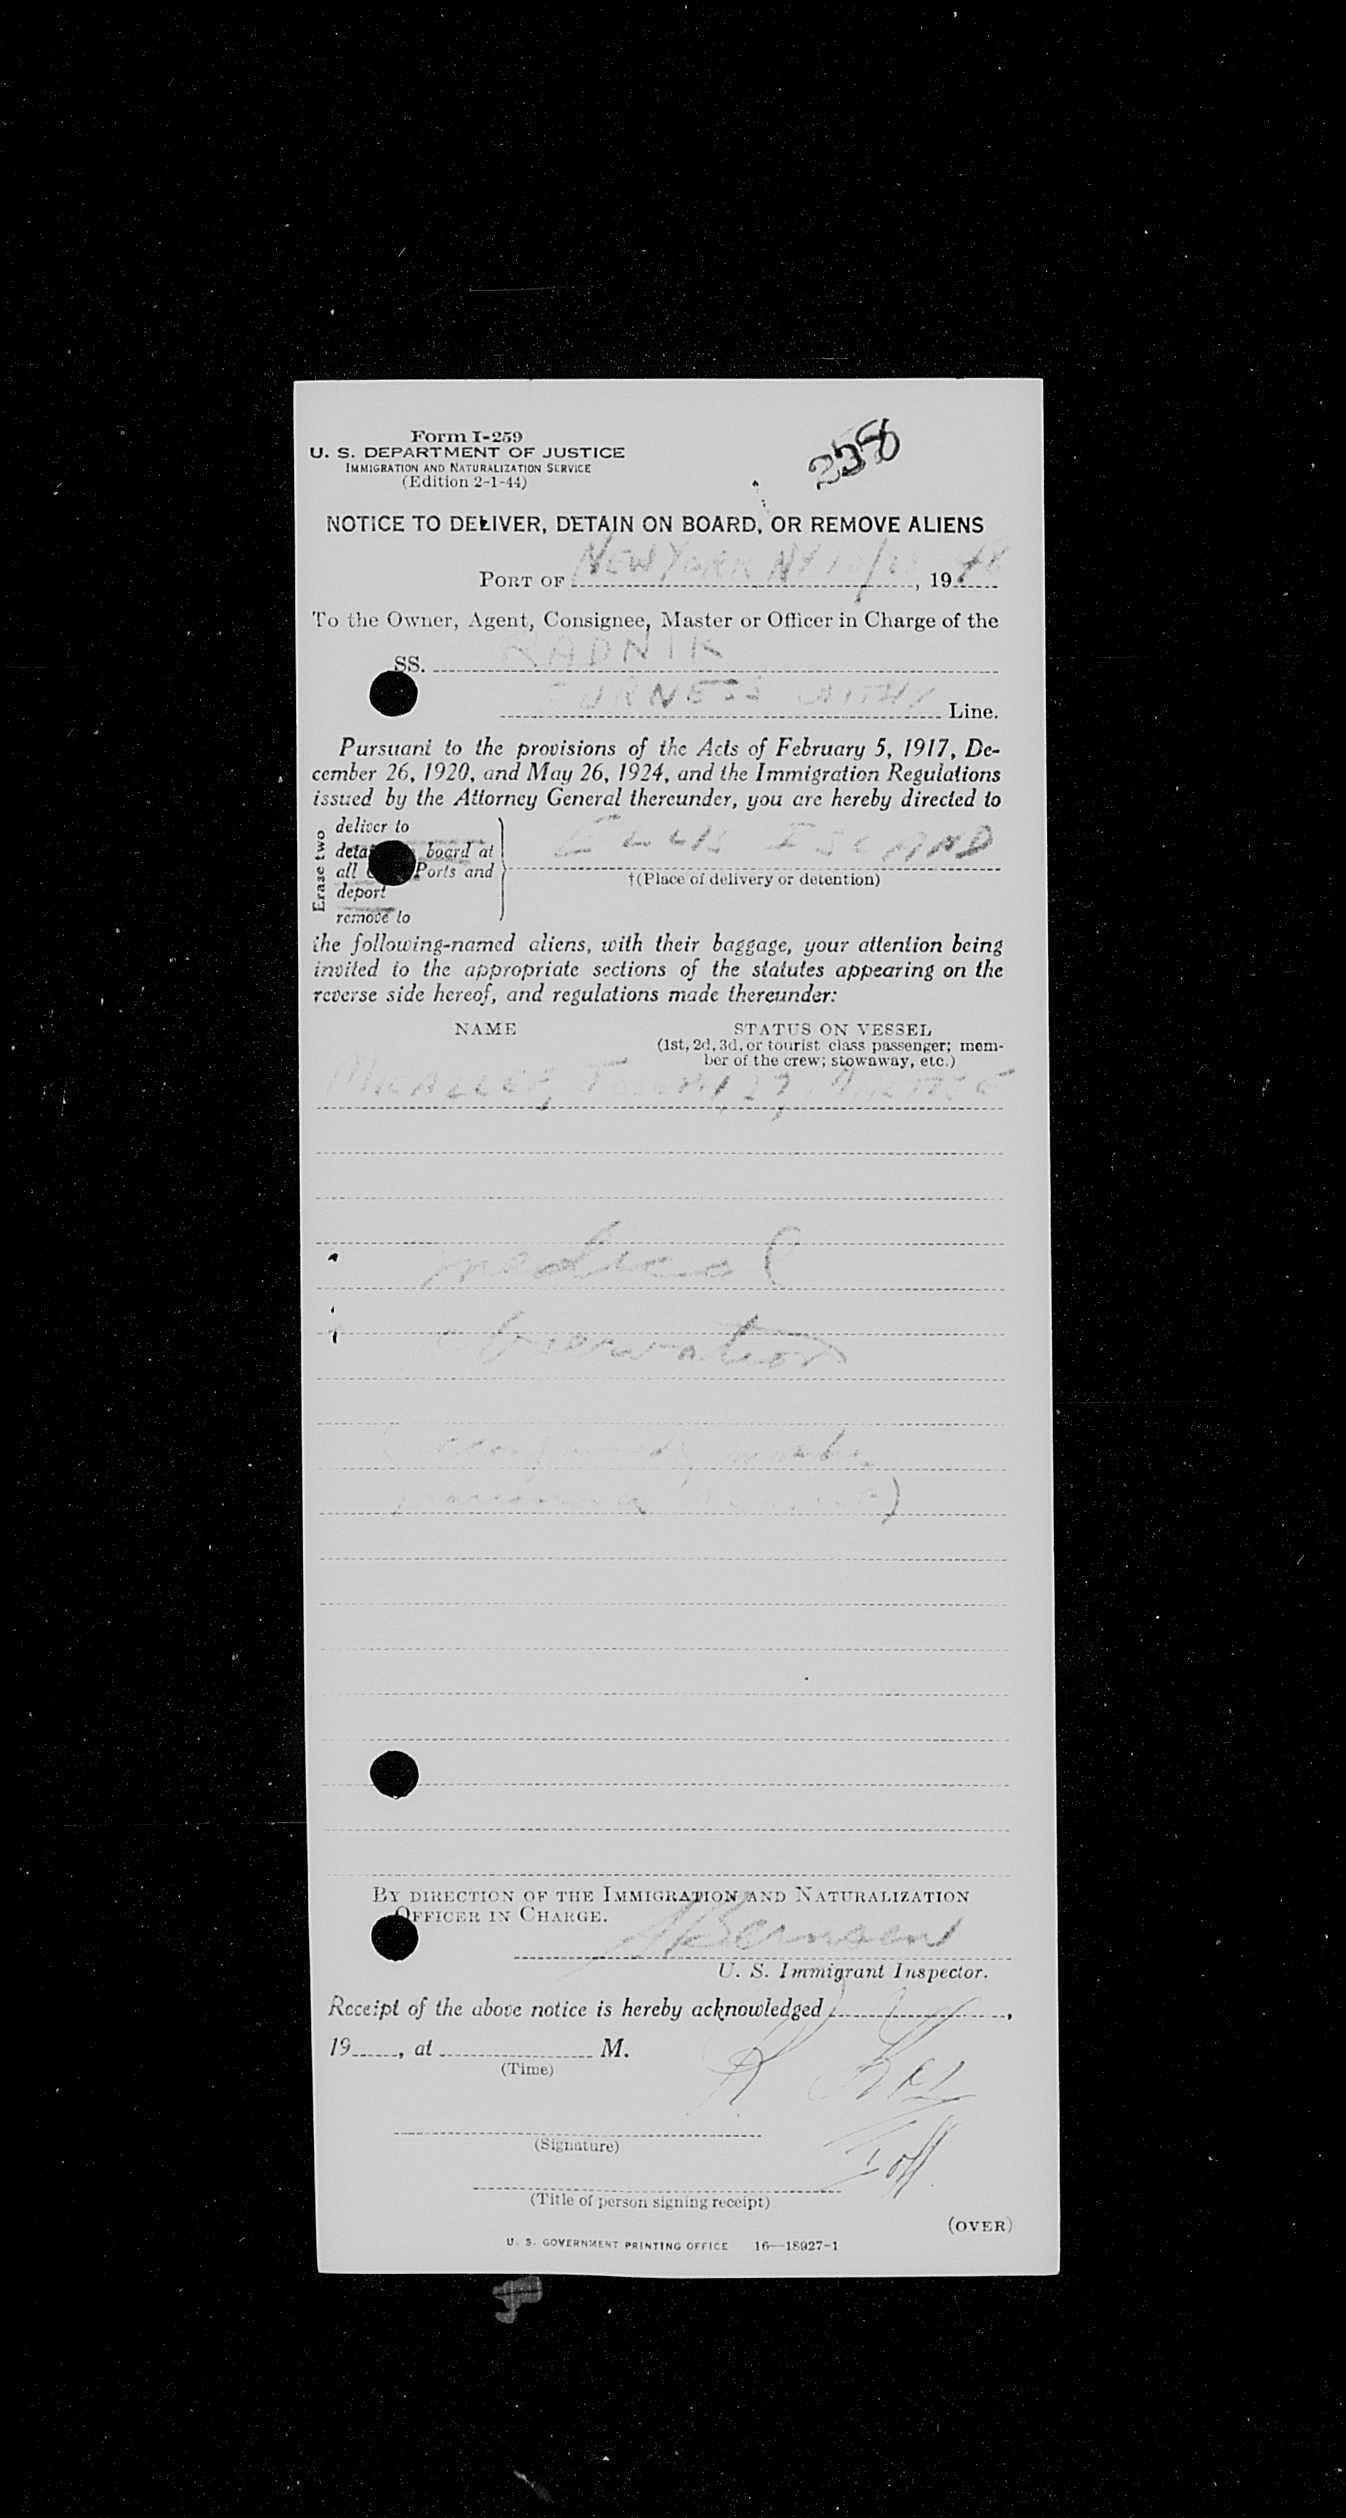 Form I-259
U. S. DEPARTMENT OF JUSTICE
IMMIGRATION AND NATURALIZATION SERVICE
(Edition 2-1-44)
NOTICE TO DELIVER, DETAIN ON BOARD, OR REMOVE ALIENS
PORT OF NEW YORK NY, 1948
To the Owner, Agent, Consignee, Master or Officer in Charge of the
SS. RADNIK
FURNESS WITHY Line.
Pursuant to the provisions of the Acts of February 5, 1917, De-
cember 26, 1920, and May 26, 1924, and the Immigration Regulations
issued by the Attorney General thereunder, you are hereby directed to
Erase two
deliver to
board at
all Ports and
deport
remove to
ELLIS ISLAND
†(Place of delivery or detention)
the following-named aliens, with their baggage, your attention being
invited to the appropriate sections of the statutes appearing on the
reverse side hereof, and regulations made thereunder:
NAME
STATUS ON VESSEL
(1st, 2d, 3d, or tourist class passenger; mem-
ber of the crew; stowaway, etc.)
MICALLEF, 27,
medical
observation
BY DIRECTION OF THE IMMIGRATION AND NATURALIZATION
OFFICER IN CHARGE.
U. S. Immigrant Inspector.
Receipt of the above notice is hereby acknowledged ,
19 , at M.
(Time)
(Signature)
(Title of person signing receipt)
(OVER)
U. S. GOVERNMENT PRINTING OFFICE 16—18927-1